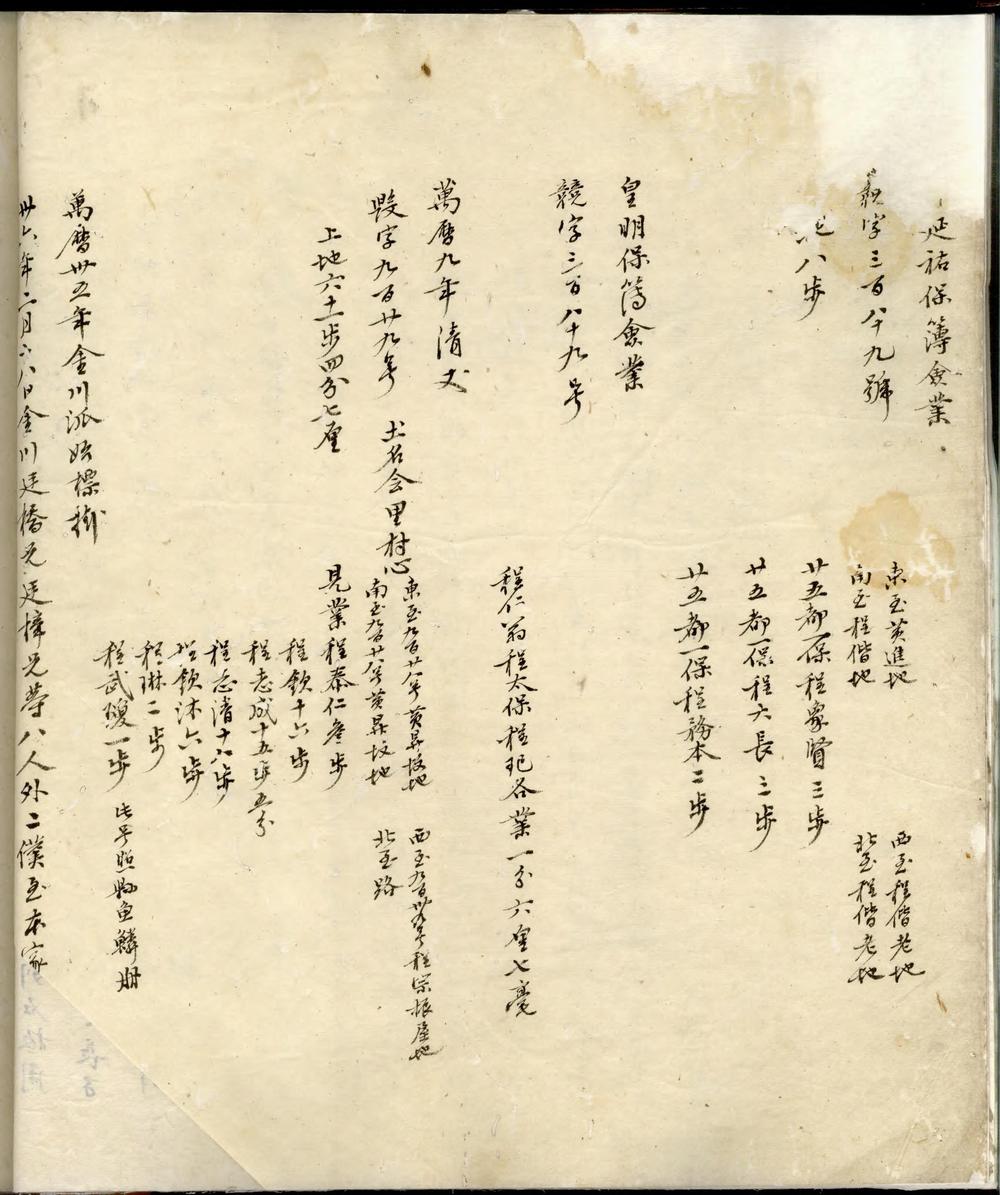 延祐保簿僉業
競字三百八十九號
八步
東至黃進地
南至程偕地
西至程偕老地
北至程偕老地
廿五都一保程象賢三步
廿五都一保程六長三步
廿五都一保程務本二步
皇明保簿僉業
競字三百八十九号
程仁翁程太保程玘各業一分六厘七毫
萬曆九年清丈
毀字九百廿九号
土名会里村心
東至九百廿八号黃昇坟地
南至九百廿八号黃昇坟地
西至九百卅号程宗根屋地
北至路
上地六十一步四分七厘
見業程泰仁叁步
程欽十六步
程志成十五步五分
程志清十六步
程欽沐六步
程琳二步
程武䕫一步
此号照夥魚鱗册
萬曆卅五年金川派始標掛
卅六年二月六八日金川廷橋兄廷樟兄等八人外二僕至本家